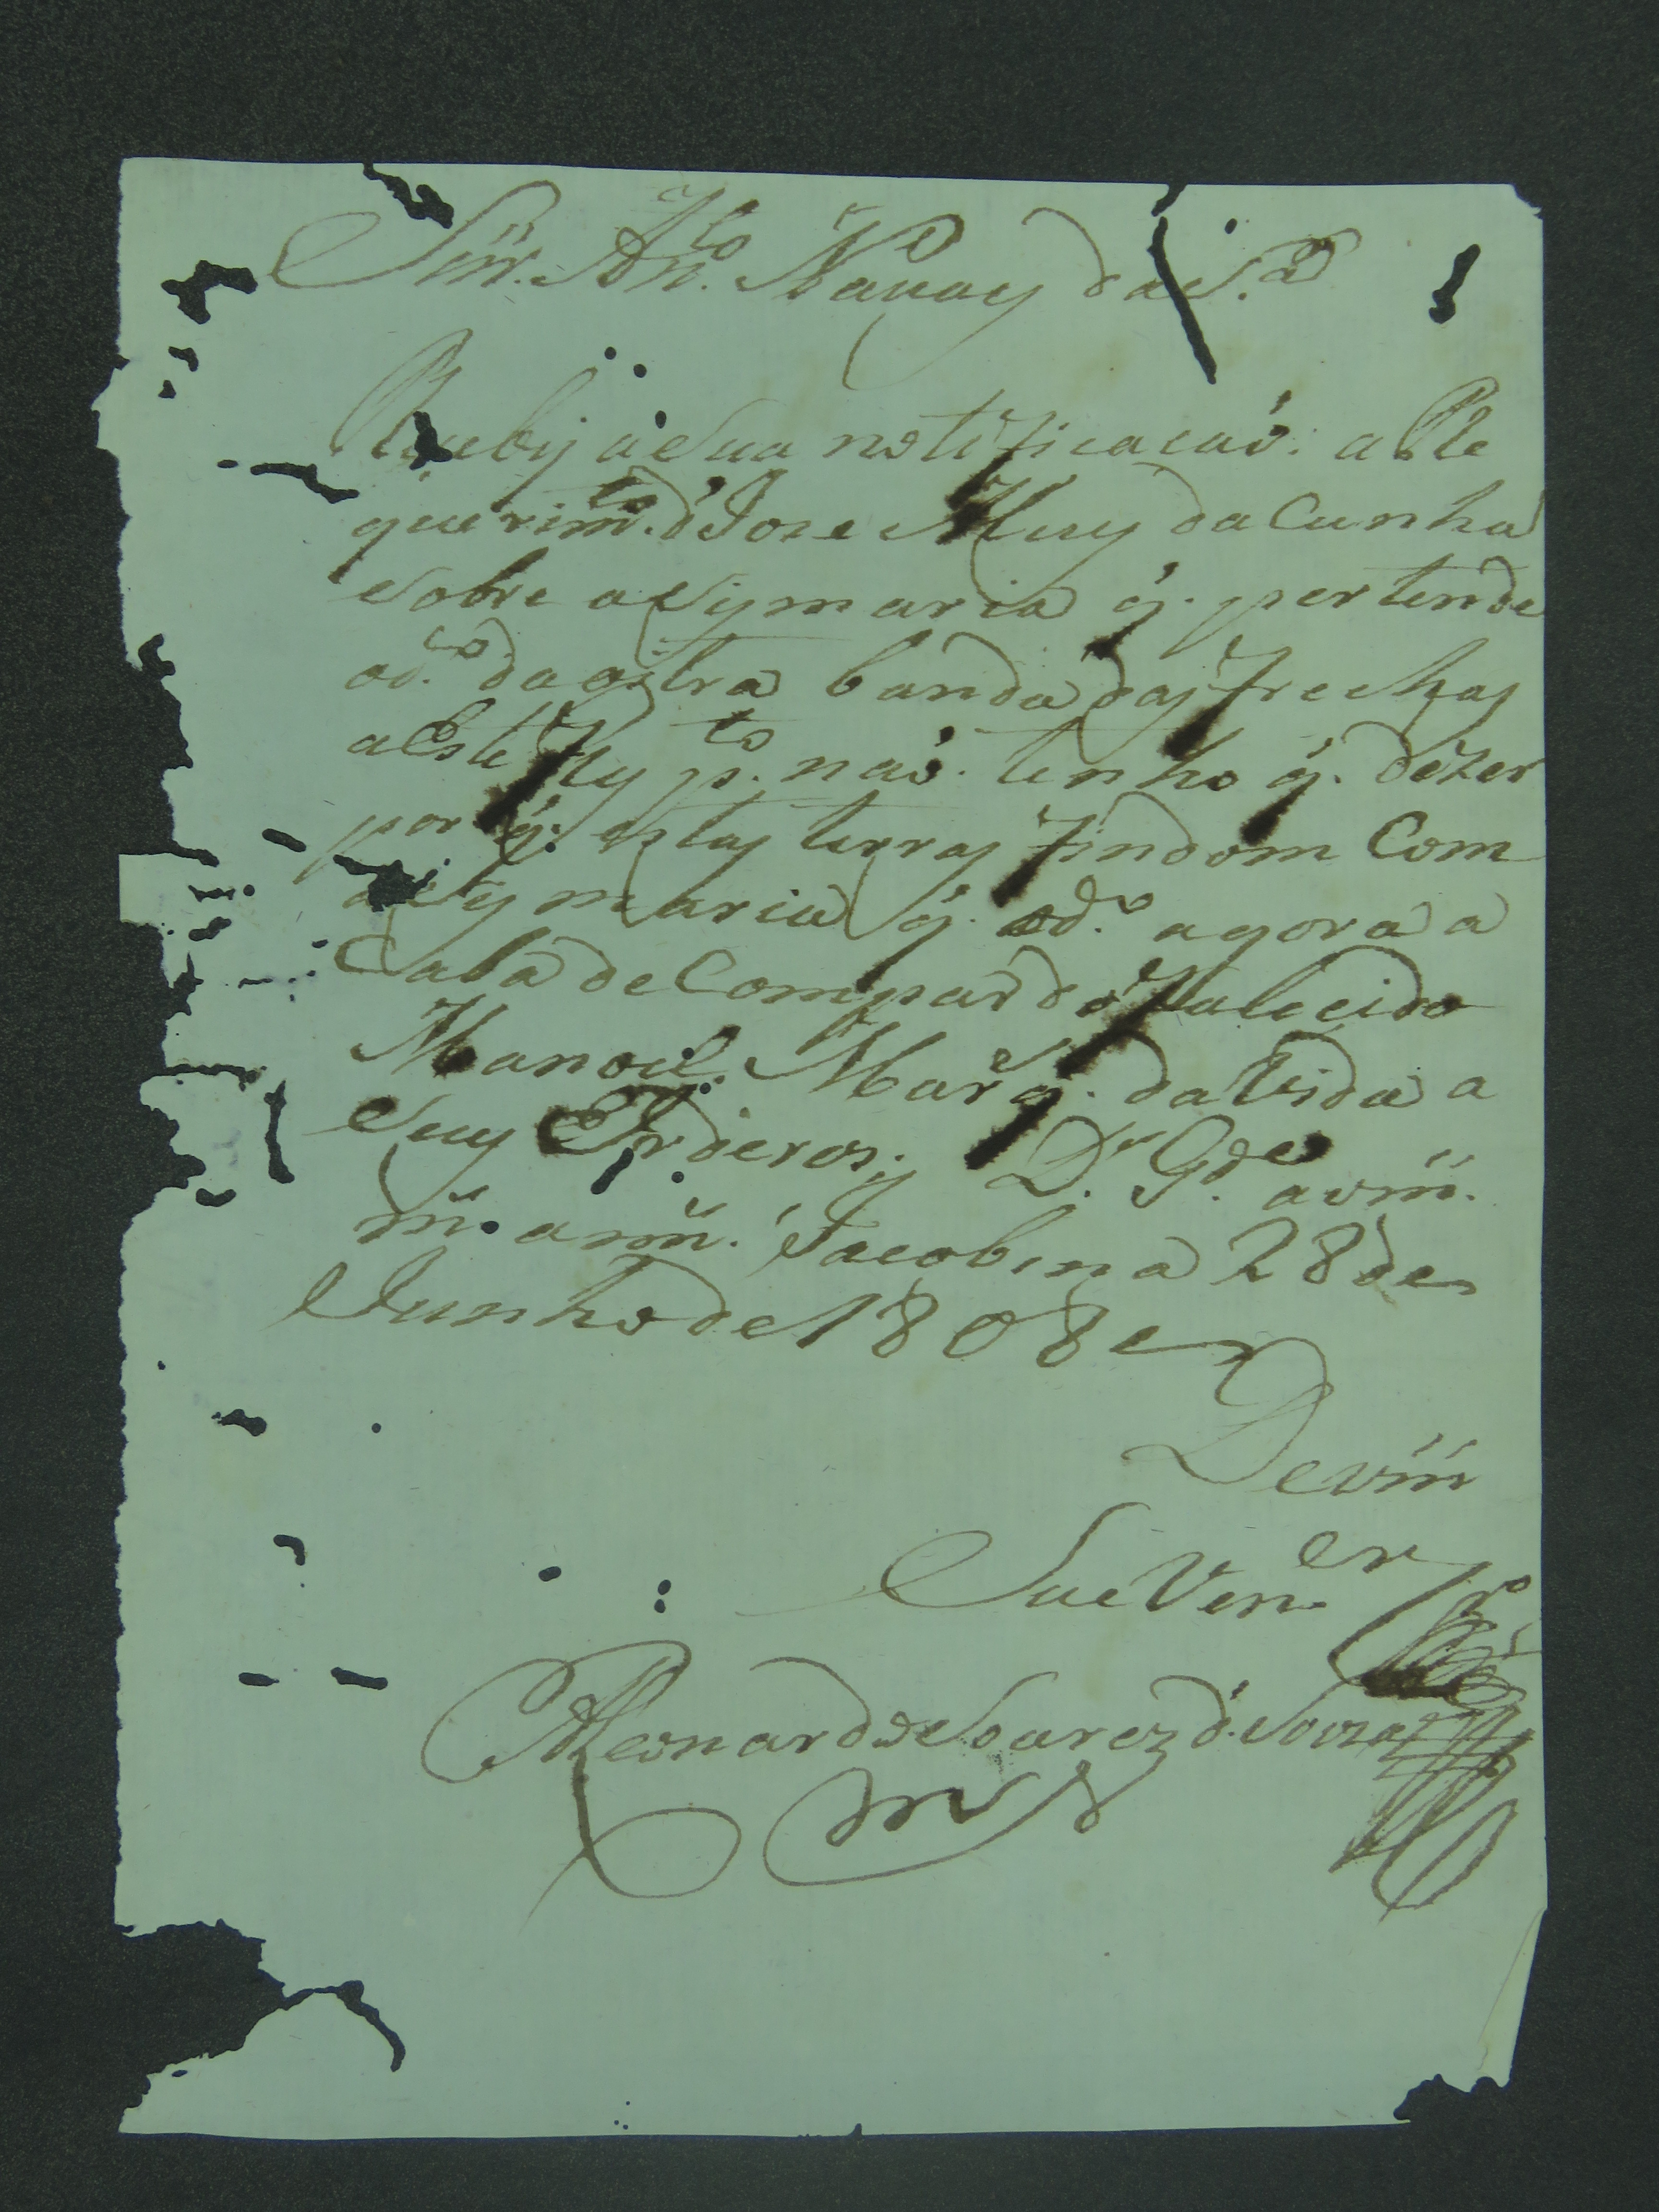 Snr. Anto. Navaes da S.a
Recebij a Sua notificacaó. a Re
querimto. d' Joze Alues da Cunha
Sobre a Sysmaria q. pertende
o do. da ostra banda das frechas
a Este p.to naó. tenho q. dizer
por q. estas terras findom Com
a Sysmaria q. o do. agora a
Caba de Compar do falecido
Manoel. Marq.s da vida a
Suas Erderos, Ds. Gde. a vm̃.
m.s ann.s Jacobina 28 de
Junho de 1808
De vm̃
Sue Vener
Leonardo Soarez d. Souza